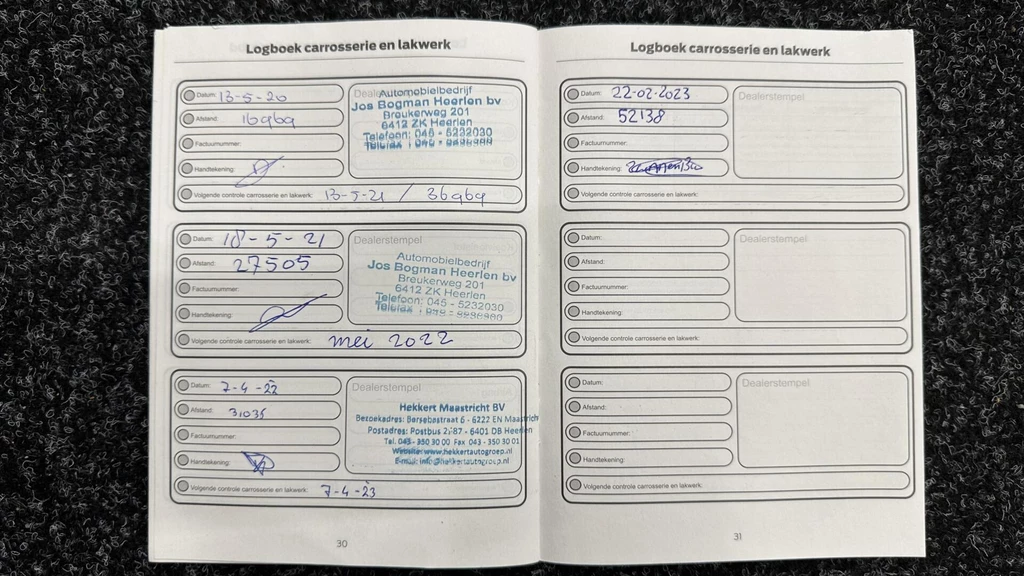 Logboek carrosserie en lakwerk
Datum: 13-5-20
Afstand: 16969
Factuurnummer:
Handtekening:
Volgende controle carrosserie en lakwerk: 13-5-21 / 36969
Dealerstempel
Automobielbedrijf
Jos Bogman Heerlen bv
Breukerweg 201
6412 ZK Heerlen
Telefoon: 045 - 5232030
Telefax : 045 -
Datum: 18-5-21
Afstand: 27505
Factuurnummer:
Handtekening:
Volgende controle carrosserie en lakwerk: mei 2022
Dealerstempel
Automobielbedrijf
Jos Bogman Heerlen bv
Breukerweg 201
6412 ZK Heerlen
Telefoon: 045 - 5232030
Telefax : 045 -
Datum: 7-4-22
Afstand: 31035
Factuurnummer:
Handtekening:
Volgende controle carrosserie en lakwerk: 7-4-23
Dealerstempel
Hekkert Maastricht BV
Bezoekadres: Bersebastraat 6 - 6222 EN Maastrich
Postadres: Postbus 2187 - 6401 DB Heerlen
Tel. 043 - 350 30 00 Fax 043 - 350 30 01
Website: www.hekkertautogroep.nl
E-mail: info@hekkertautogroep.nl
30
Logboek carrosserie en lakwerk
Datum: 22-02-2023
Afstand: 52138
Factuurnummer:
Handtekening:
Volgende controle carrosserie en lakwerk:
Dealerstempel
Datum:
Afstand:
Factuurnummer:
Handtekening:
Volgende controle carrosserie en lakwerk:
Dealerstempel
Datum:
Afstand:
Factuurnummer:
Handtekening:
Volgende controle carrosserie en lakwerk:
Dealerstempel
31